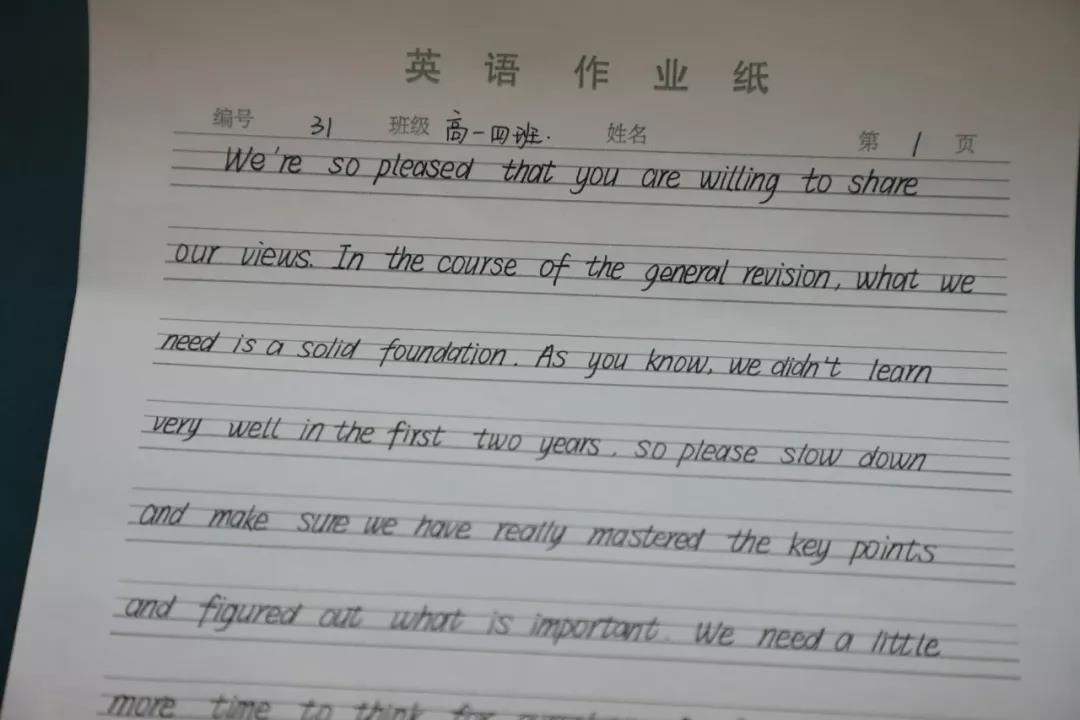 英语作业纸
编号 31 班级 高一四班. 姓名 第 1 页
We're so pleased that you are willing to share
our views. In the course of the general revision, what we
need is a solid foundation. As you know, we didn't learn
very well in the first two years, so please slow down
and make sure we have really mastered the key points
and figured out what is important. We need a little
more time to think for